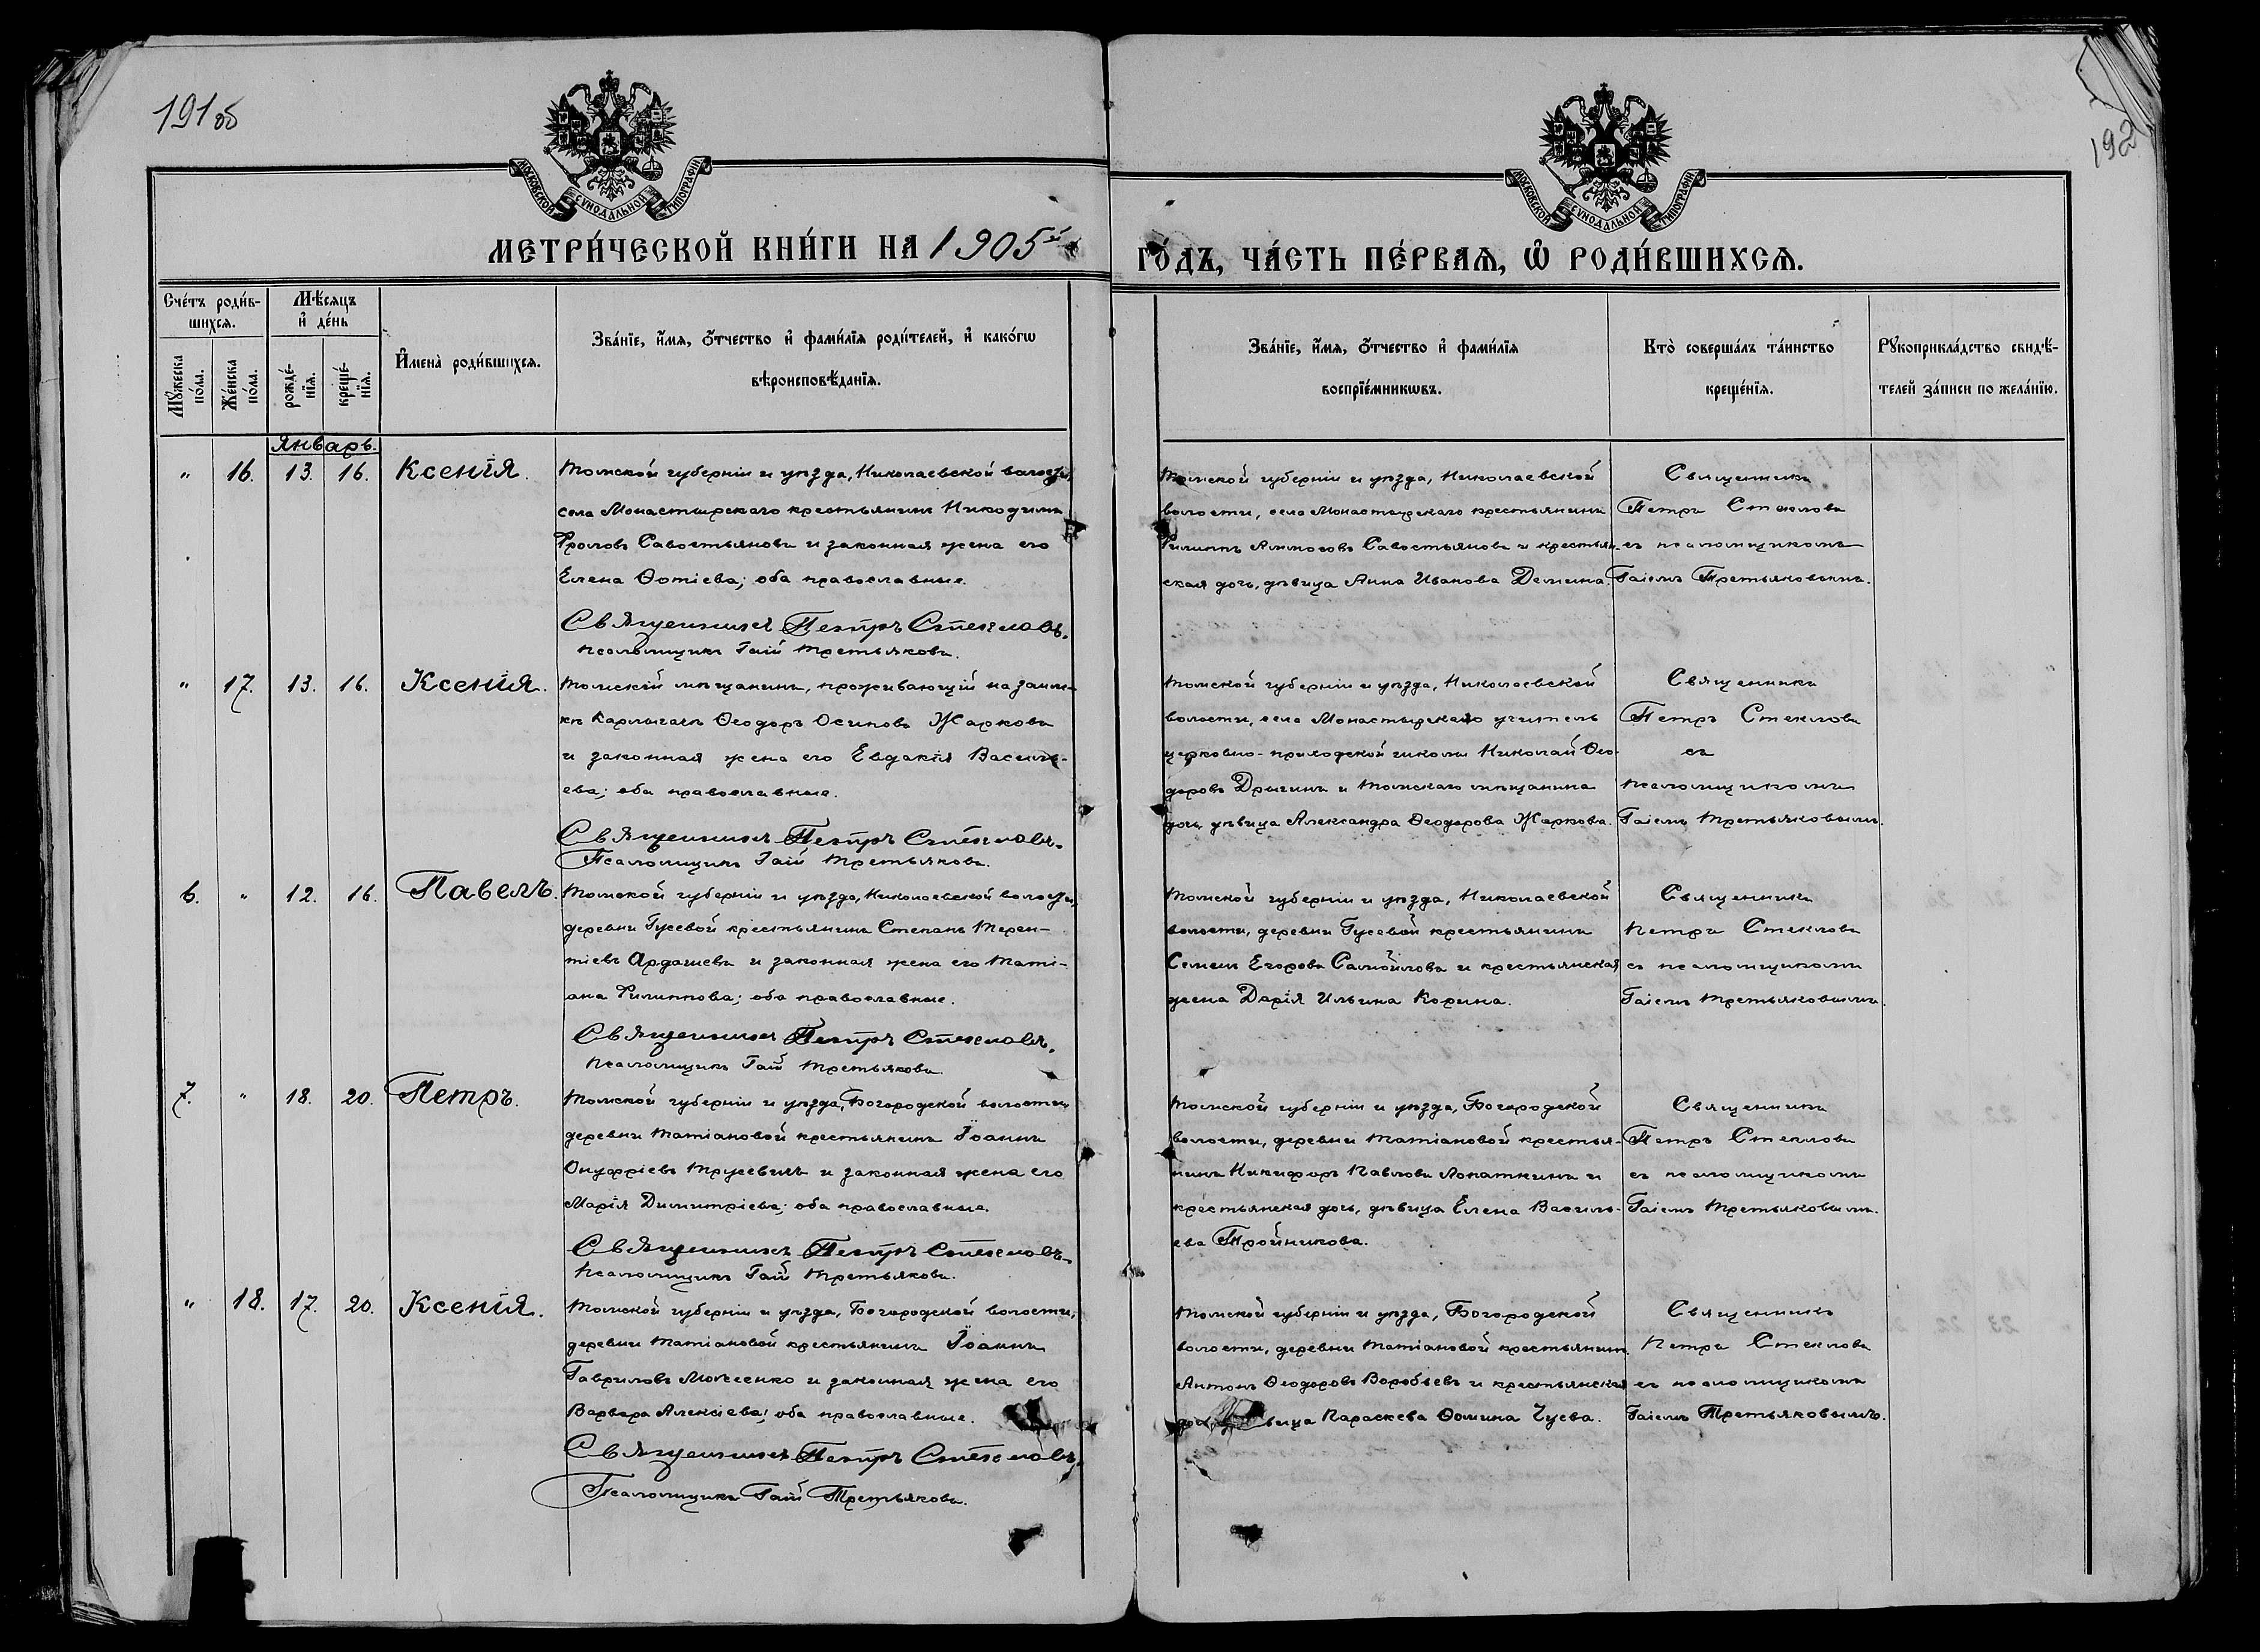 191 об
192
МОСКОВСКОЙ СУНОДАЛЬНОЙ ТИПОГРАФІИ
МОСКОВСКОЙ СУНОДАЛЬНОЙ ТИПОГРАФІИ
МЕТРИ́ЧЕСКОЙ КНИ́ГИ НА 1905й
ГО́ДЪ, ЧА́СТЬ ПЕ́РВАѦ, Ѽ РОДИ́ВШИХСѦ.
Сче́тъ роди́в-
шихсѧ.
Мѣ́сѧцъ
и҆ де́нь
Мꙋ́жеска
по́ла.
Же́нска
по́ла.
рожде́-
нїѧ.
креще́-
нїѧ.
И҆мена̀ роди́вшихсѧ.
Зва́нїе, и҆́мѧ, ѻ҆́тчество и҆ фами́лїѧ роди́телей, и҆ како́гѡ
вѣроисповѣ́данїѧ.
Зва́нїе, и҆́мѧ, ѻ҆́тчество и҆ фами́лїѧ
воспрїе́мникѡвъ.
Кто̀ соверша́лъ та́инство
креще́нїѧ.
Рꙋкоприкла́дство свидѣ́-
телей за́писи по жела́нїю.
Январь.
" 16. 13. 16. Ксенія.
Томской губерніи и уѣзда, Николаевской волости,
села Монастырскаго крестьянинъ Никодимъ
Фроловъ Савостьяновъ и законная жена его
Елена Ѳотіева; оба православные.
Священникъ Петръ Стекловъ.
Псаломщикъ Гаій Третьяковъ.
Томской губерніи и уѣзда, Николаевской
волости, села Монастырскаго крестьянинъ
Филиппъ Савостьяновъ и крестьян-
ская дочь, дѣвица Анна Иванова Демина.
Священникъ
Петръ Стекловъ
съ псаломщикомъ
Гаіемъ Третьяковымъ.
" 17. 13. 16. Ксенія.
Томскій мѣщанинъ, проживающій на заим-
кѣ Карлыгакъ Ѳеодоръ Осиповъ Жарковъ
и законная жена его Евдакія Василь-
ева; оба православные.
Священникъ Петръ Стекловъ.
Псаломщикъ Гаій Третьяковъ.
Томской губерніи и уѣзда, Николаевской
волости, села Монастырскаго учитель
церковно-приходской школы Николай Ѳео-
доровъ Дрыгинъ и Томскаго мѣщанина
дочь, дѣвица Александра Ѳеодорова Жаркова.
Священникъ
Петръ Стекловъ
съ
псаломщикомъ
Гаіемъ Третьяковымъ.
6. " 12. 16. Павелъ.
Томской губерніи и уѣзда, Николаевской волости,
деревни Гусевой крестьянинъ Степанъ Терен-
тіевъ Ардашевъ и законная жена его Таті-
ана Филиппова; оба православные.
Священникъ Петръ Стекловъ.
Псаломщикъ Гаій Третьяковъ.
Томской губерніи и уѣзда, Николаевской
волости, деревни Гусевой крестьянинъ
Семенъ Егоровъ Самойловъ и крестьянская
жена Дарія Ильина Корина.
Священникъ
Петръ Стекловъ
съ псаломщикомъ
Гаіемъ Третьяковымъ.
7. " 18. 20. Петръ.
Томской губерніи и уѣзда, Богородской волости
деревни Татіановой крестьянинъ Іоаннъ
Онуфріевъ Трусевичъ и законная жена его
Марія Димитріева; оба православные.
Священникъ Петръ Стекловъ.
Псаломщикъ Гаій Третьяковъ.
Томской губерніи и уѣзда, Богородской
волости, деревни Татіановой крестья-
нинъ Никифоръ Павловъ Лопаткинъ и
крестьянская дочь, дѣвица Елена Василь-
ева Тройникова.
Священникъ
Петръ Стекловъ
съ псаломщикомъ
Гаіемъ Третьяковымъ.
" 18. 17. 20. Ксенія.
Томской губерніи и уѣзда, Богородской волости,
деревни Татіановой крестьянинъ Іоаннъ
Гавриловъ Мойсеенко и законная жена его
Варвара Алексіева; оба православные.
Священникъ Петръ Стекловъ.
Псаломщикъ Гаій Третьяковъ.
Томской губерніи и уѣзда, Богородской
волости, деревни Татіановой крестьянинъ
Антонъ Ѳеодоровъ Воробьевъ и крестьянская
дочь, дѣвица Параскева Ѳомина Чуева.
Священникъ
Петръ Стекловъ
съ псаломщикомъ
Гаіемъ Третьяковымъ.